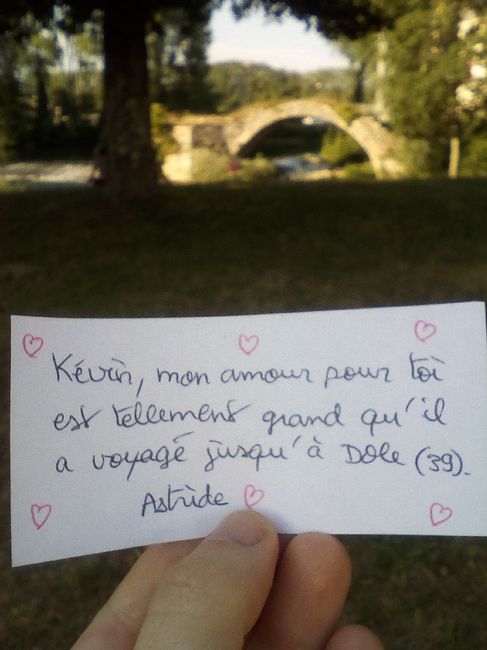 Kévin, mon amour pour toi
est tellement grand qu'il
a voyagé jusqu'à Dole (39).
Astride